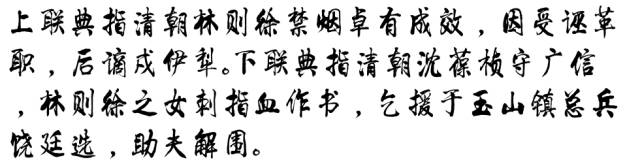 上联典指清朝林则徐禁烟卓有成效，因受诬革
职，后谪戍伊犁。下联典指清朝沈葆桢守广信
，林则徐之女刺指血作书，乞援于玉山镇总兵
饶廷选，助夫解围。